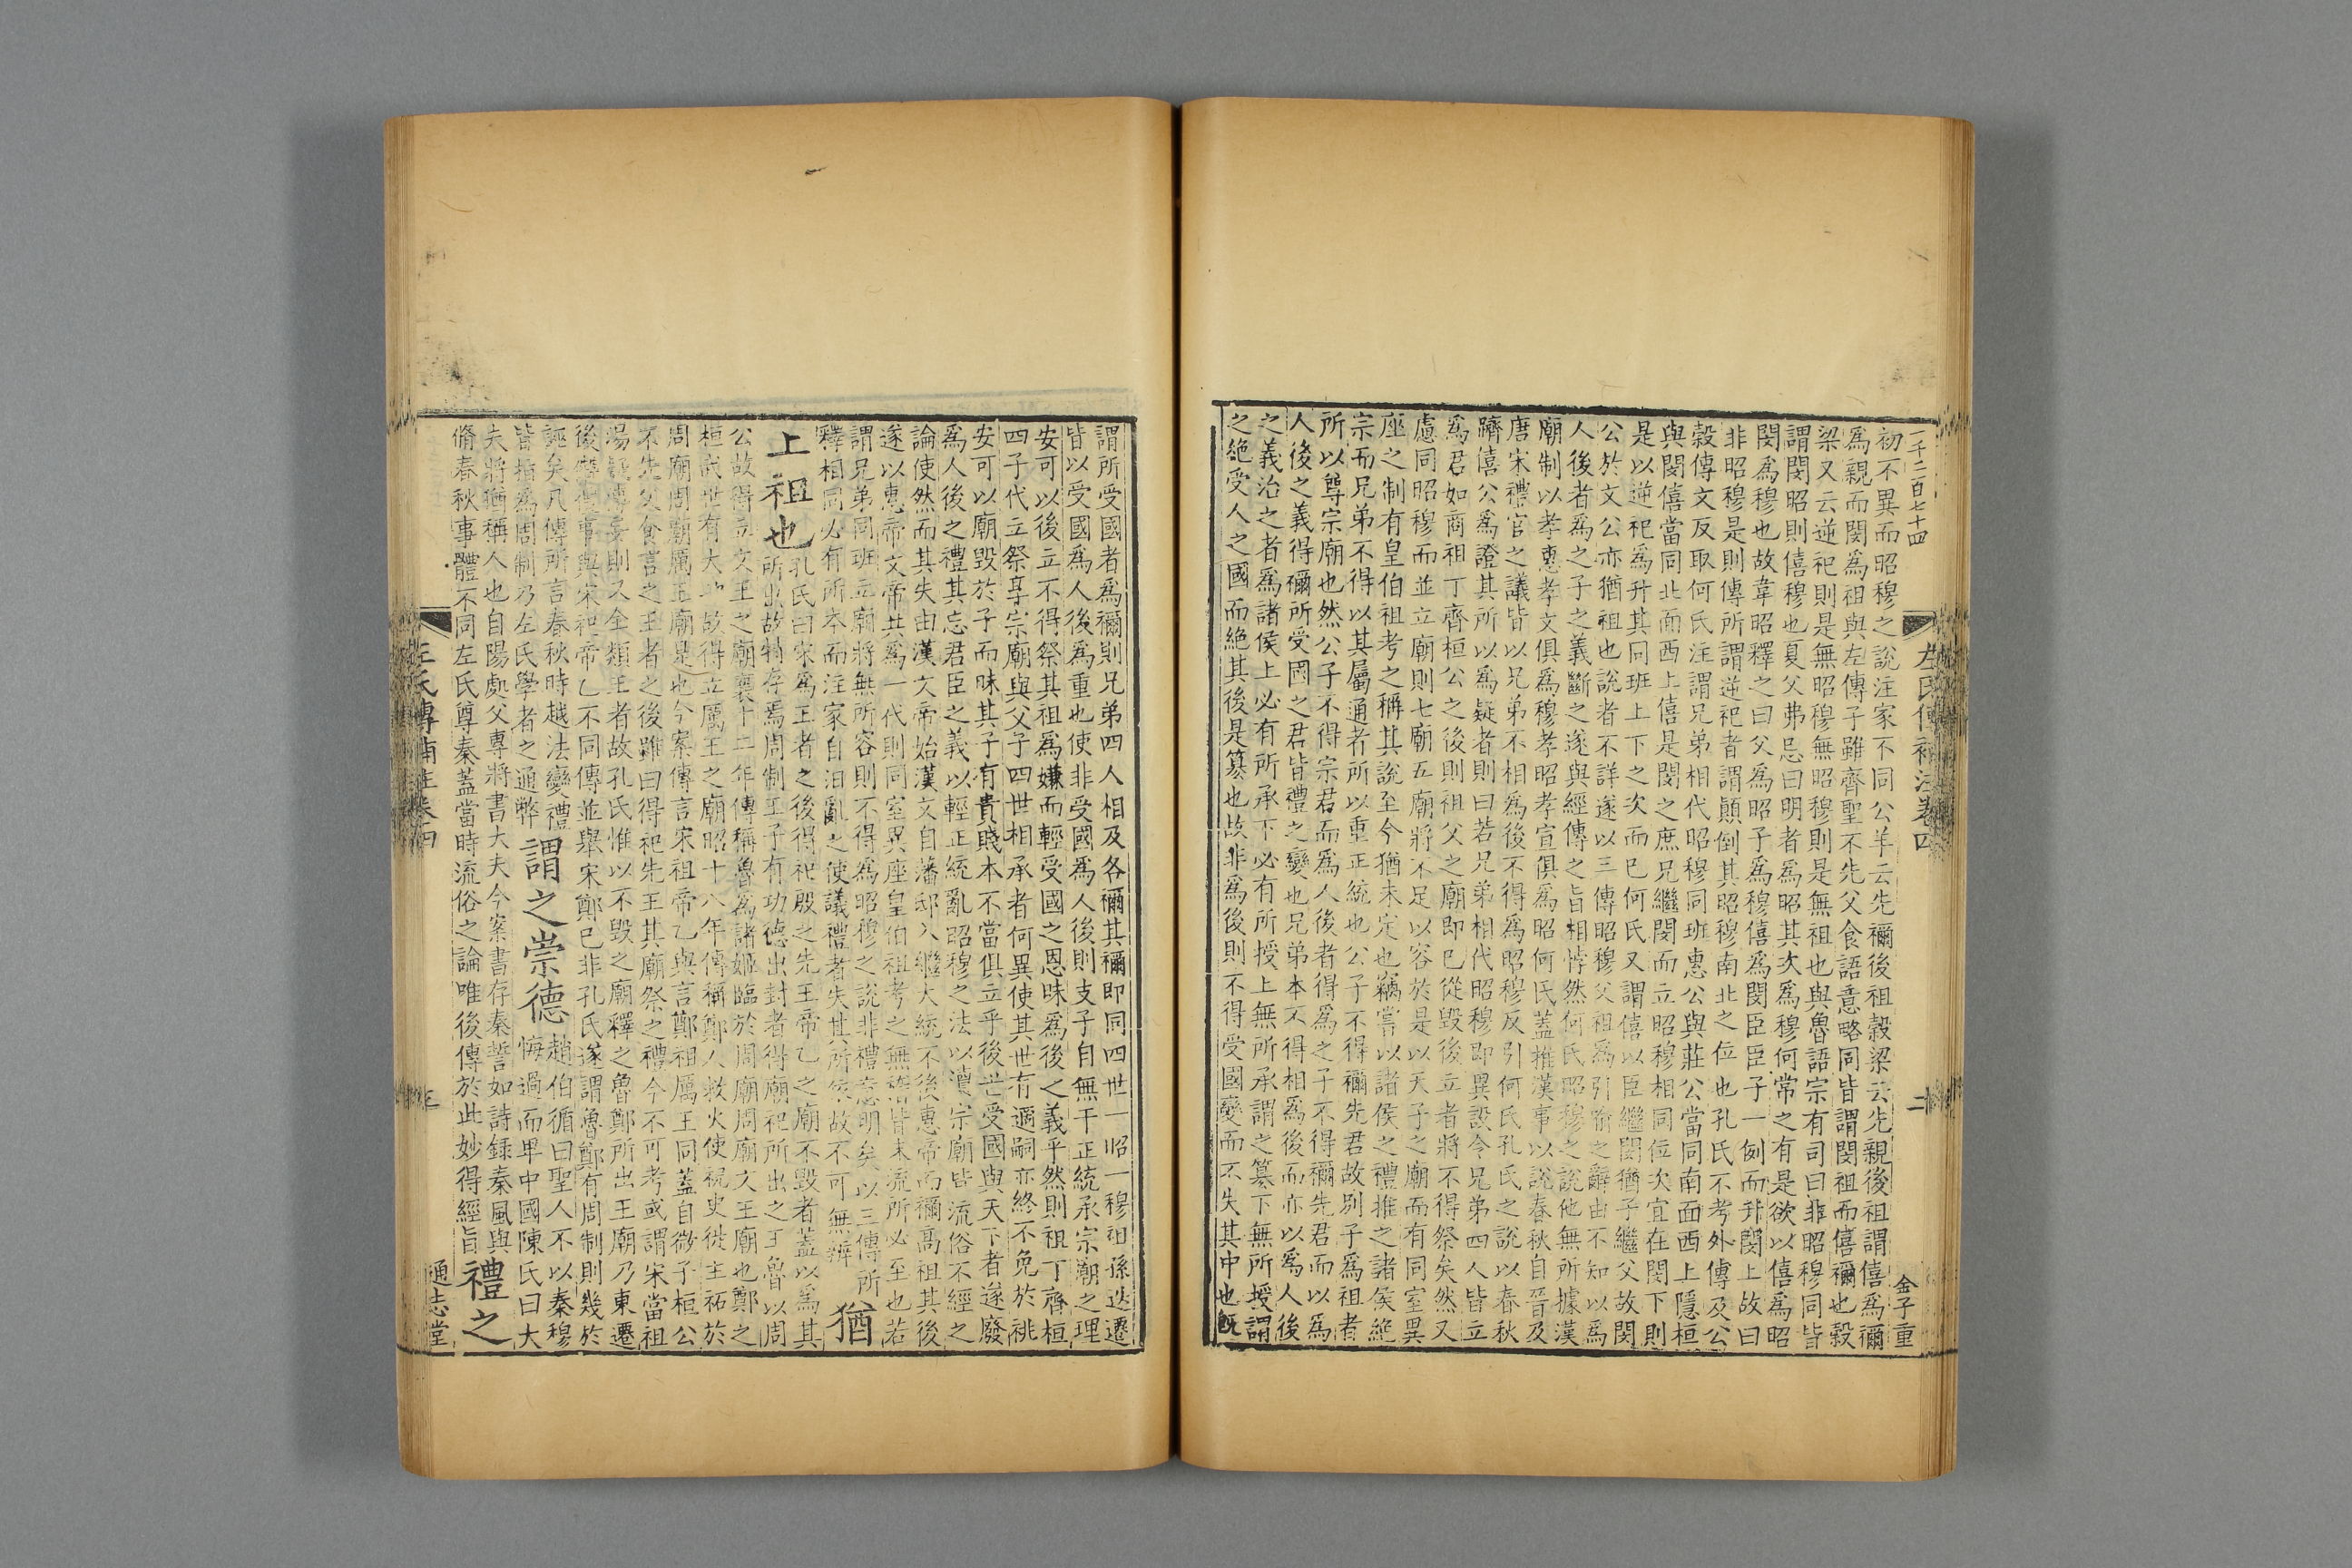 一千二百七十四
金子重
左氏傳補注卷四
二
初不異而昭穆之說注家不同公羊云先禰後祖穀梁云先親後祖謂僖爲禰
爲親而閔爲祖與左傳子雖齊聖不先父食語意略同皆謂閔祖而僖禰也穀
梁又云逆祀則是無昭穆無昭穆則是無祖也與魯語宗有司曰非昭穆同皆
謂閔昭則僖穆也夏父弗忌曰明者爲昭其次爲穆何常之有是欲以僖爲昭
閔爲穆也故韋昭釋之曰父爲昭子爲穆僖爲閔臣臣子一例而升閔上故曰
非昭穆是則傳所謂逆祀者謂顚倒其昭穆南北之位也孔氏不考外傳及公
穀傳文反取何氏注謂兄弟相代昭穆同班惠公與莊公當同南面西上隱桓
與閔僖當同北面西上僖是閔之庶兄繼閔而立昭穆相同位次宜在閔下則
是以逆祀爲升其同班上下之次而已何氏又謂僖以臣繼閔猶子繼父故閔
公於文公亦猶祖也說者不詳遂以三傳昭穆父祖爲引喻之辭由不知以爲
人後者爲之子之義斷之遂與經傳之旨相悖然何氏昭穆之說他無所據漢
廟制以孝惠孝文俱爲穆孝昭孝宣俱爲昭何氏蓋推漢事以說春秋自晉及
唐宋禮官之議皆以兄弟不相爲後不得爲昭穆反引何氏孔氏之說以春秋
躋僖公爲證其所以爲疑者則曰若兄弟相代昭穆即異設令兄弟四人皆立
爲君如商祖丁齊桓公之後則祖父之廟即已從毀後立者將不得祭矣然又
慮同昭穆而並立廟則七廟五廟將不足以容於是以天子之廟而有同室異
座之制有皇伯祖考之稱其說至今猶未定也竊嘗以諸侯之禮推之諸侯絶
宗而兄弟不得以其屬通者所以重正統也公子不得禰先君故別子爲祖者
所以尊宗廟也然公子不得宗君而爲人後者得爲之子不得禰先君而以爲
人後之義得禰所受國之君皆禮之變也兄弟本不得相爲後而亦以爲人後
之義治之者爲諸侯上必有所承下必有所授上無所承謂之簒下無所授謂
之絶受人之國而絶其後是簒也故非爲後則不得受國變而不失其中也旣
謂所受國者爲禰則兄弟四人相及各禰其禰即同四世一昭一穆祖孫迭遷
皆以受國爲人後爲重也使非受國爲人後則支子自無干正統承宗廟之理
安可以後立不得祭其祖爲嫌而輕受國之恩昧爲後之義乎然則祖丁齊桓
四子代立祭享宗廟與父子四世相承者何異使其世有適嗣亦終不免於祧
安可以廟毀於子而昧其子有貴賤本不當俱立乎後世受國與天下者遂廢
爲人後之禮其忘君臣之義以輕正統亂昭穆之法以瀆宗廟皆流俗不經之
論使然而其失由漢文帝始漢文自藩邸入繼大統不後惠帝而禰高祖其後
遂以惠帝文帝共爲一代則同室異座皇伯祖考之無稽皆末流所必至也若
謂兄弟同班立廟將無所容則不得爲昭穆之說非禮意明矣以三傳所
釋相同必有所本而注家自汨亂之使議禮者失其所依故不可無辨 猶
上祖也 孔氏曰宋爲王者之後得祀殷之先王帝乙之廟不毀者蓋以爲其
所出故特存焉周制王子有功德出封者得廟祀所出之王魯以周
公故得立文王之廟襄十二年傳稱魯爲諸姬臨於周廟周廟文王廟也鄭之
桓武世有大功故得立厲王之廟昭十八年傳稱鄭人救火使祝史徙主祏於
周廟周廟厲王廟是也今案傳言宋祖帝乙與言鄭祖厲王同蓋自微子桓公
不先父食言之王者之後雖曰得祀先王其廟祭之禮今不可考或謂宋當祖
湯疑傳言則又全類王者故孔氏惟以不毀之廟釋之魯鄭所出王廟乃東遷
後僭禮事與宋祀帝乙不同傳並舉宋鄭已非孔氏遂謂魯鄭有周制則幾於
誣矣凡傳所言春秋時越法變禮
皆指爲周制乃左氏學者之通弊 謂之崇德 趙伯循曰聖人不以秦穆
悔過而卑中國陳氏曰大
夫將猶稱人也自陽處父專將書大夫今案書存秦誓如詩録秦風與
脩春秋事體不同左氏尊秦蓋當時流俗之論唯後傳於此妙得經旨 禮之
左氏傳補注卷四
三
通志堂